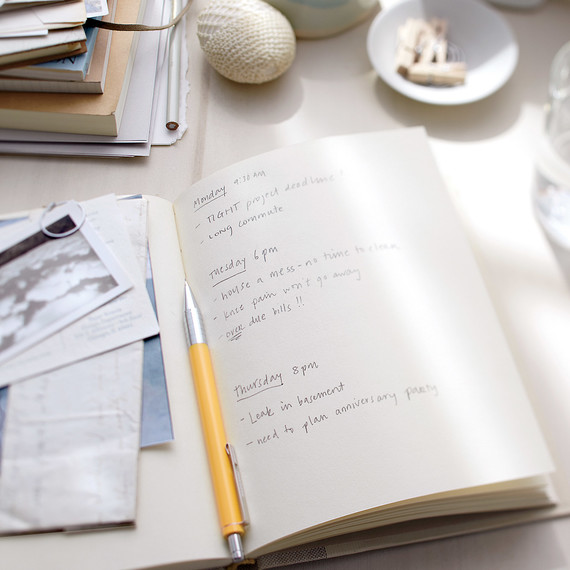 Monday 9:30 AM
- TIGHT project deadline!
- LONG commute
Tuesday 6pm
- house a mess - no time to clean
- knee pain won't go away
- over due bills !!
Thursday 8pm
- Leak in basement
- need to plan anniversary party